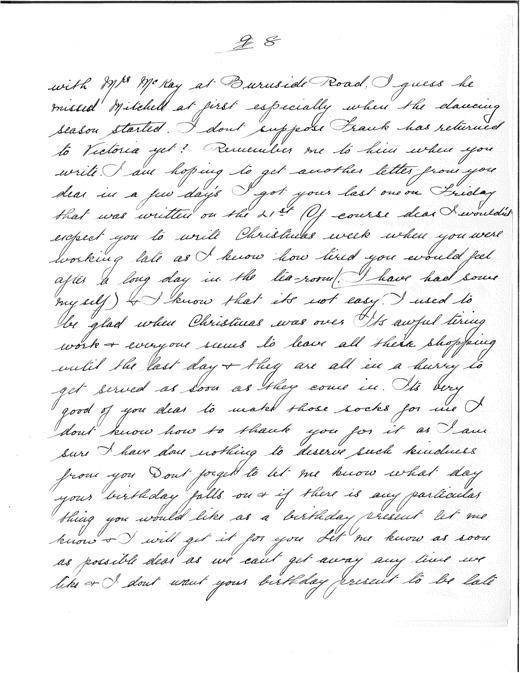 9 8
with Mrs McKay at Burnside Road. I guess he
missed Mitchell at first especially where the dancing
season started. I dont suppose Frank has returned
to Victoria yet? Remember me to him when you
write. I am hoping to get another letter from you
dear in a few day's I got your last one on Friday
that was written on the 21st Of course dear I wouldn't
expect you to write Christmas week when you were
working late as I know how tired you would feel
after a long day in the tea-room (I have had some
myself) & I know that its not easy. I used to
be glad when Christmas was over Its awful tiring
work & everyone seems to leave all their shopping
until the last day & they are all in a hurry to
get served as soon as they come in. Its very
good of you dear to make those socks for me I
dont know how to thank you for it as I am
sure I have done nothing to deserve such kindness
from you Dont forget to let me know what day
your birthday falls on & if there is any particular
thing you would like as a birthday present let me
know & I will get it for you Let me know as soon
as possible dear as we cant get away any time we
like & I dont want your birthday present to be late